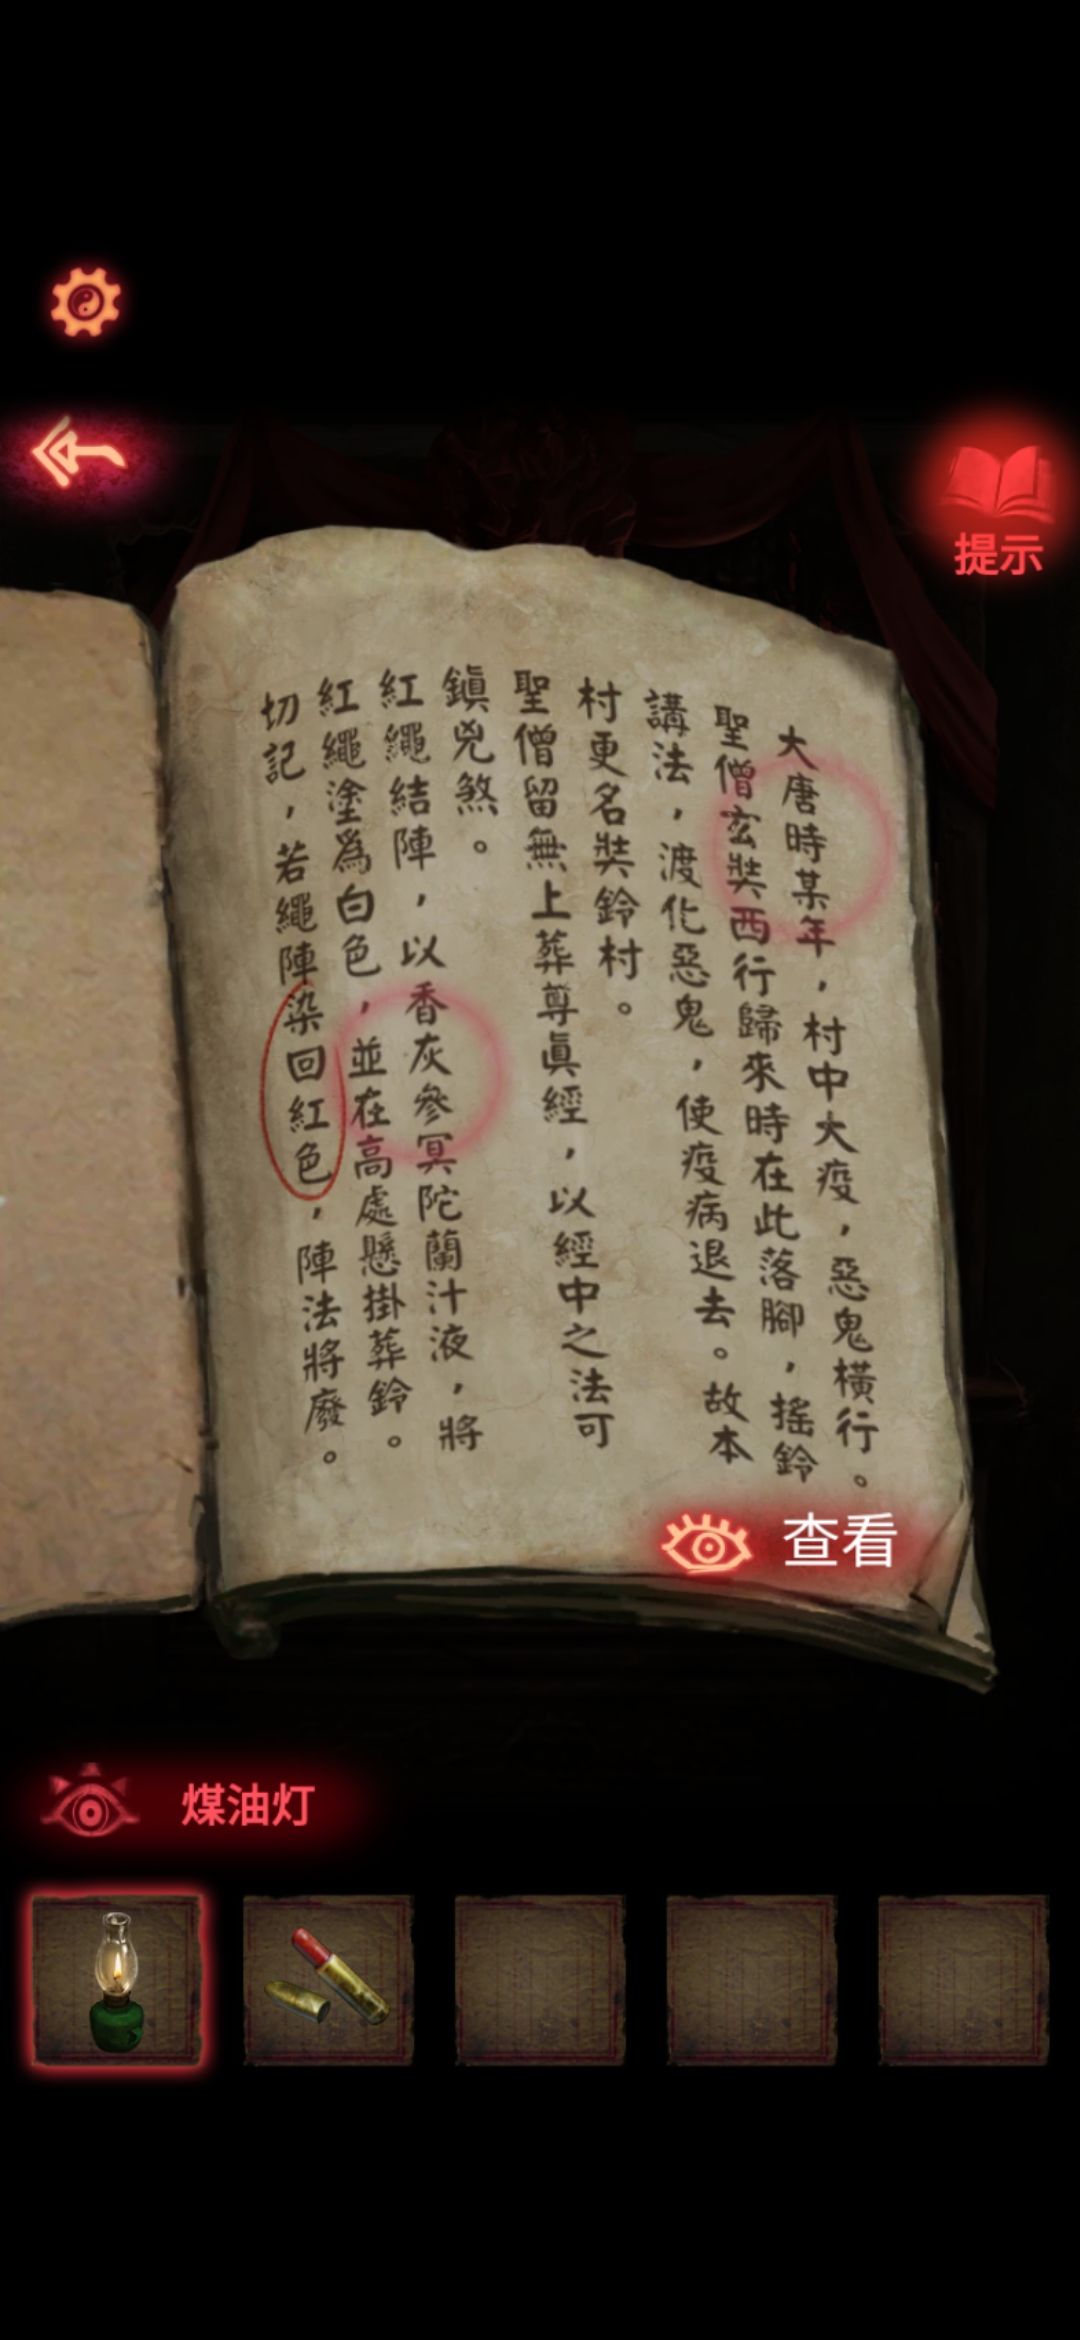 提示
大唐時某年，村中大疫，惡鬼橫行。
聖僧玄奘西行歸來時在此落腳，搖鈴
講法，渡化惡鬼，使疫病退去。故本
村更名奘鈴村。
聖僧留無上葬尊眞經，以經中之法可
鎮兇煞。
紅繩結陣，以香灰參冥陀蘭汁液，將
紅繩塗爲白色，並在高處懸掛葬鈴。
切記，若繩陣染回紅色，陣法將廢。
查看
煤油灯